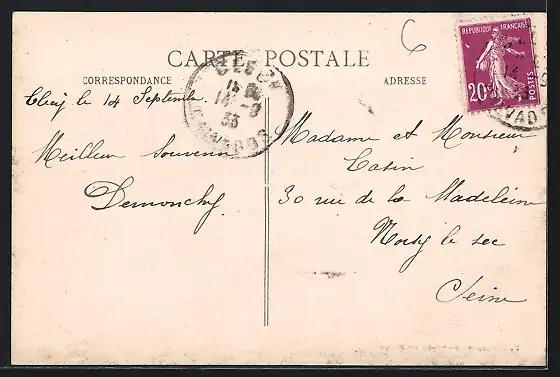 6
RÉPUBLIQUE FRANÇAISE
POSTES
20c
CARTE POSTALE
CORRESPONDANCE
ADRESSE
Clécy le 14 Septembre.
Meilleur Souvenir
Demonchy
14-9
33
CALVADOS
Madame et Monsieur
30 rue de la Madeleine
Noisy le sec
Seine